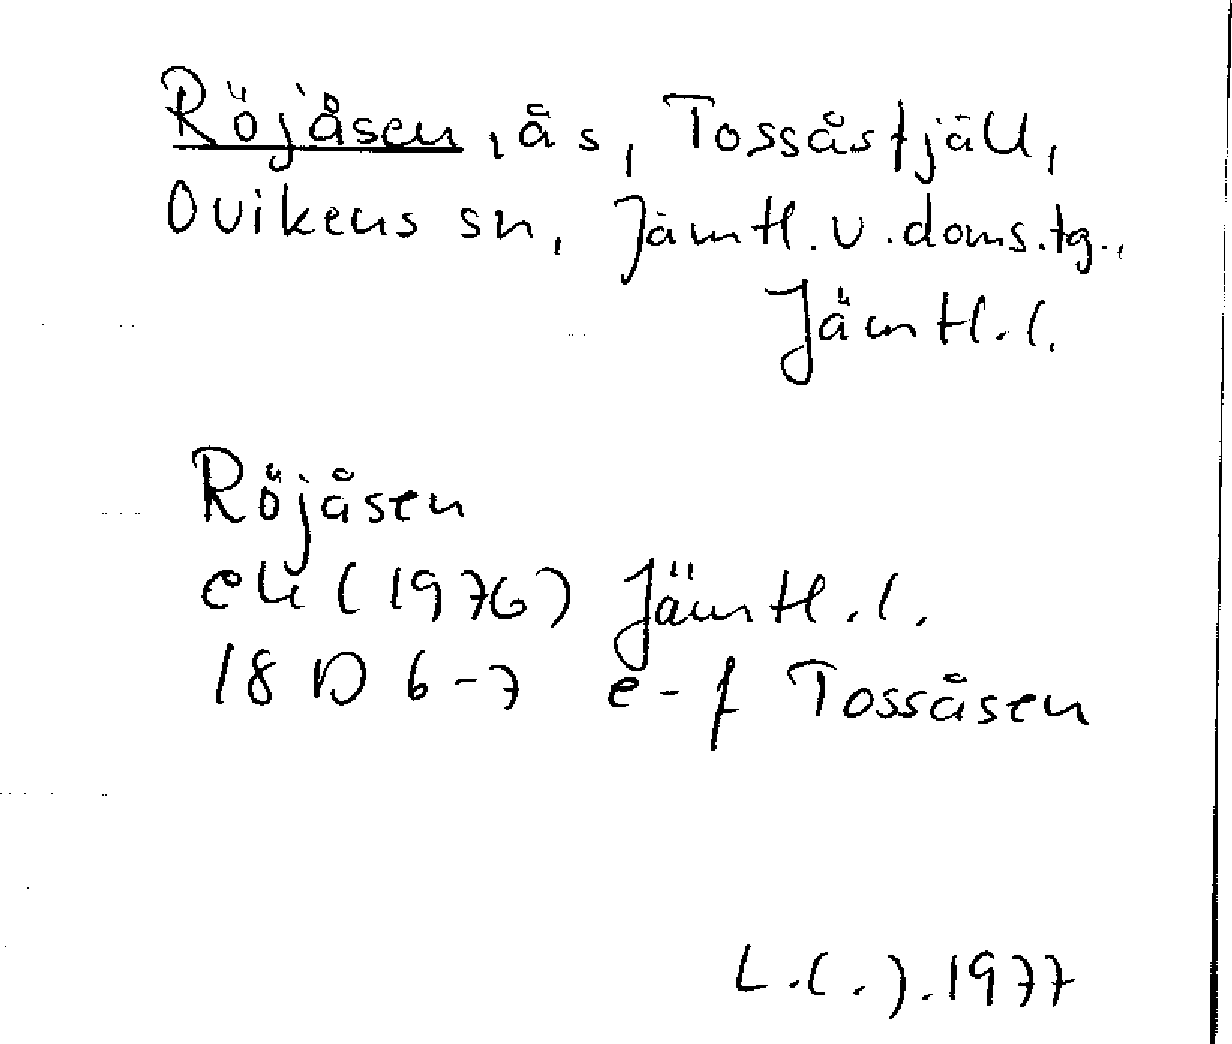 Röjåsen, ås, Tossåsfjäll,
Ovikens sn, Jämtl.v.doms.tg.,
Jämtl.l.
Röjåsen
ek (1976) Jämtl.l.
18 D 6-7 e-f Tossåsen
L.(.).1977